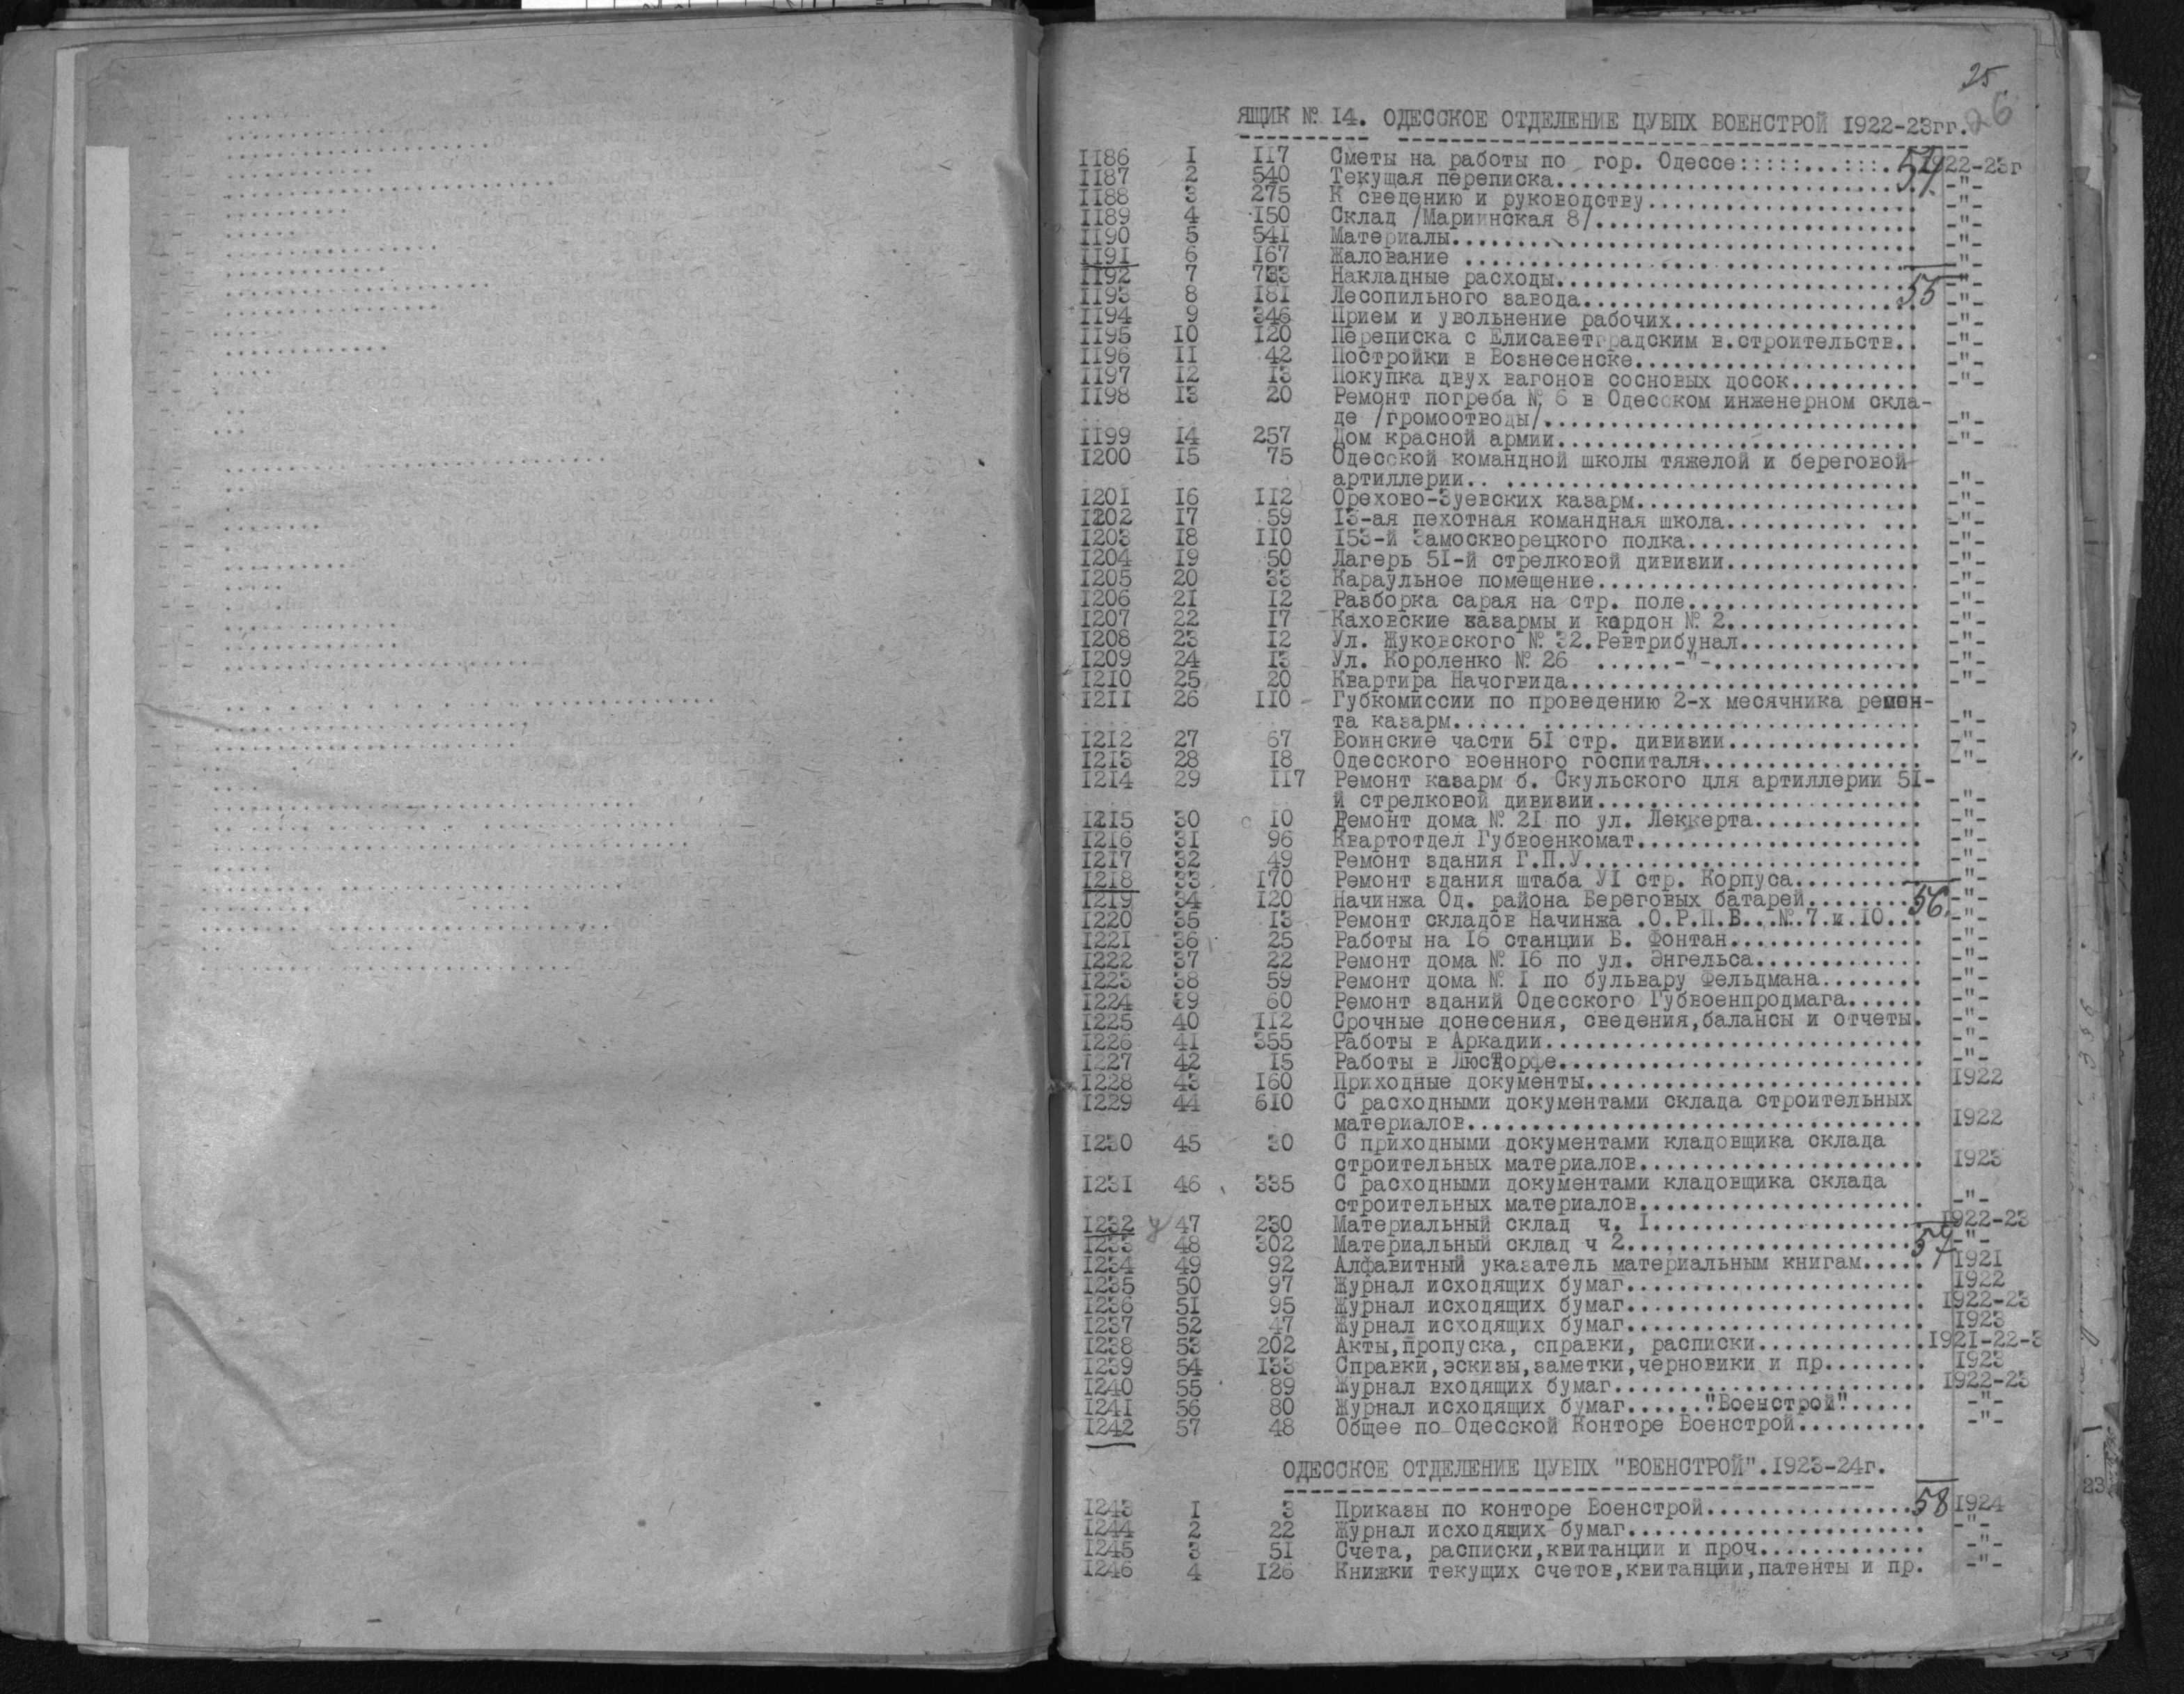 25
26
ЯЩИК № I4. ОДЕССКОЕ ОТДЕЛЕНИЕ ЦУВПХ ВОЕНСТРОЙ I922-23гг.
II86 I II7 Сметы на работы по гор. Одессе:::::...:::. 54 I922-23г
II87 2 540 Текущая переписка............................ -"-
II88 3 275 К сведению и руководству..................... -"-
II89 4 I50 Склад /Мариинская 8/......................... -"-
II90 5 54I Материалы.................................... -"-
II9I 6 I67 Жалование ................................... -"-
II92 7 733 Накладные расходы............................ -"-
II93 8 I8I Лесопильного завода.......................... 55 -"-
II94 9 346 Прием и увольнение рабочих................... -"-
II95 I0 I20 Переписка с Елисаветградским в.строительств.. -"-
II96 II 42 Постройки в Вознесенске...................... -"-
II97 I2 I3 Покупка двух вагонов сосновых досок.......... -"-
II98 I3 20 Ремонт погреба № 6 в Одесском инженерном скла-
де /громоотводы/............................. -"-
II99 I4 257 Дом красной армии............................ -"-
I200 I5 75 Одесской командной школы тяжелой и береговой
артиллерии.. ................................ -"-
I20I I6 II2 Орехово-Зуевских казарм...................... -"-
I202 I7 59 I3-ая пехотная командная школа........... ... -"-
I203 I8 II0 I53-й Замоскворецкого полка.................. -"-
I204 I9 50 Лагерь 5I-й стрелковой дивизии............... -"-
I205 20 33 Караульное помещение......................... -"-
I206 2I I2 Разборка сарая на стр. поле.................. -"-
I207 22 I7 Каховские казармы и кордон № 2............... -"-
I208 23 I2 Ул. Жуковского № 32.Ревтрибунал.............. -"-
I209 24 I3 Ул. Короленко № 26 ......-"-................ -"-
I2I0 25 20 Квартира Начогвида........................... -"-
I2II 26 II0 Губкомиссии по проведению 2-х месячника ремон-
та казарм...... ............................. -"-
I2I2 27 67 Воинские части 5I стр. дивизии............... -"-
I2I3 28 I8 Одесского военного госпиталя................. -"-
I2I4 29 II7 Ремонт казарм б. Скульского для артиллерии 5I-
й стрелковой дивизии......................... -"-
I2I5 30 I0 Ремонт дома № 2I по ул. Леккерта............. -"-
I2I6 3I 96 Квартотдел Губвоенкомат...................... -"-
I2I7 32 49 Ремонт здания Г.П.У.......................... -"-
I2I8 33 I70 Ремонт здания штаба УI стр. Корпуса.......... -"-
I2I9 34 I20 Начинжа Од. района Береговых батарей......... 56. -"-
I220 35 I3 Ремонт складов Начинжа .О.Р.П.Б...№.7.и.I0... -"-
I22I 36 25 Работы на I6 станции Б. Фонтан............... -"-
I222 37 22 Ремонт дома № I6 по ул. Энгельса............. -"-
I223 38 59 Ремонт дома № I по бульвару Фельдмана........ -"-
I224 39 60 Ремонт зданий Одесского Губвоенпродмага...... -"-
I225 40 II2 Срочные донесения, сведения,балансы и отчеты. -"-
I226 4I 355 Работы в Аркадии............................. -"-
I227 42 I5 Работы в Люстдорфе........................... -"-
I228 43 I60 Приходные документы.......................... I922
I229 44 6I0 С расходными документами склада строительных
материалов................................... I922
I230 45 30 С приходными документами кладовщика склада
строительных материалов...................... I923
I23I 46 335 С расходными документами кладовщика склада
строительных материалов...................... -"-
I232 47 230 Материальный склад ч. I..................... I922-23
I233 48 302 Материальный склад ч 2....................... 57 -"-
I234 49 92 Алфавитный указатель материальным книгам..... I92I
I235 50 97 Журнал исходящих бумаг....................... I922
I236 5I 95 Журнал исходящих бумаг....................... I922-23
I237 52 47 Журнал исходящих бумаг....................... I923
I238 53 202 Акты,пропуска, справки, расписки.............I92I-22-3
I239 54 I33 Справки,эскизы,заметки,черновики и пр........ I923
I240 55 89 Журнал входящих бумаг........................ I922-23
I24I 56 80 Журнал исходящих бумаг......"Военстрой"...... -"-
I242 57 48 Общее по Одесской Конторе Военстрой.......... -"-
ОДЕССКОЕ ОТДЕЛЕНИЕ ЦУВПХ "ВОЕНСТРОЙ".I923-24г.
I243 I 3 Приказы по конторе Военстрой................. 58 I924
I244 2 22 Журнал исходящих бумаг....................... -"-
I245 3 5I Счета, расписки,квитанции и проч............. -"-
I246 4 I26 Книжки текущих счетов,квитанции,патенты и пр. -"-